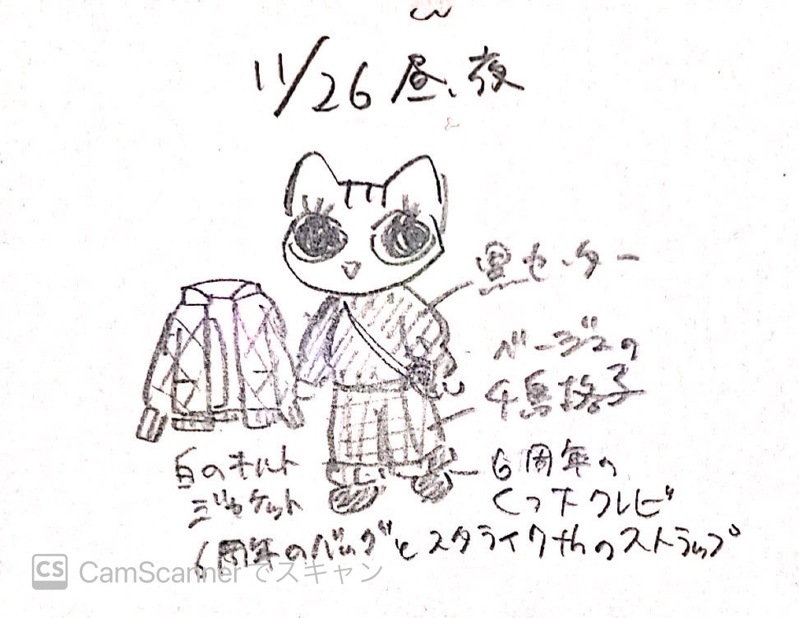 11/26 昼、夜
黒セーター
ベージュの
千鳥格子
白のキルト
ジャケット
6周年の
くつ下クレビ
6周年のバッグとスタライクthのストラップ
CS CamScanner でスキャン